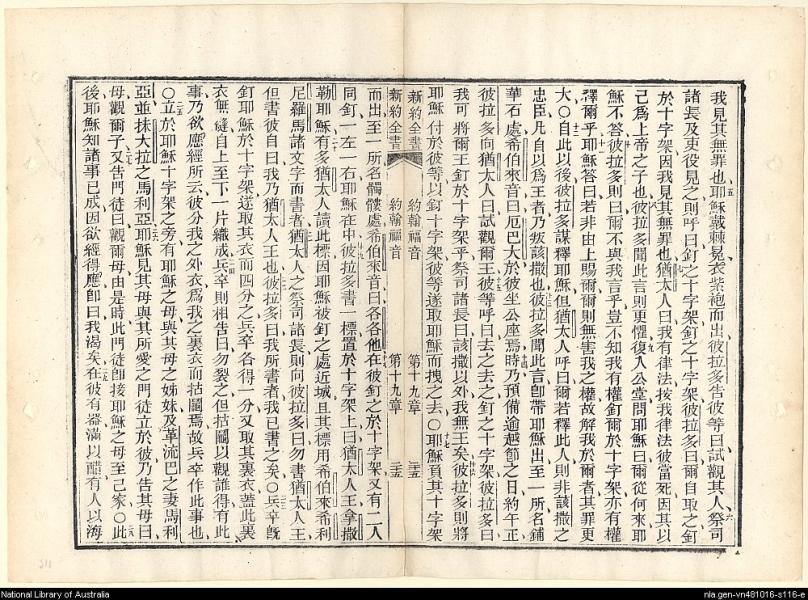 我見其無罪也耶穌戴棘冕衣紫袍而出彼拉多告彼等曰試觀其人祭司
諸長及吏役見之則呼曰釘之十字架釘之十字架彼拉多曰爾自取之釘
於十字架因我見其無罪也猶太人曰我有律法按我律法彼當死因其以
己為上帝之子也彼拉多聞此言則更懼復入公堂問耶穌曰爾從何來耶
穌不答彼拉多則曰爾不與我言乎豈不知我有權釘爾於十字架亦有權
釋爾乎耶穌答曰若非由上賜爾爾則無害我之權故解我於爾者其罪更
大○自此以後彼拉多謀釋耶穌但猶太人呼曰爾若釋此人則非該撒之
忠臣凡自以為王者乃叛該撒也彼拉多聞此言即帶耶穌出至一所名鋪
華石處希伯來音曰厄巴大於彼坐公座焉時乃預備逾越節之日約午正
彼拉多向猶太人曰試觀爾王彼等呼曰去之去之釘之十字架彼拉多曰
我可將爾王釘於十字架乎祭司諸長曰該撒以外我無王矣彼拉多則將
耶穌付於彼等以釘十字架彼等遂取耶穌而拽之去○耶穌負其十字架
新約全書 約翰福音 第十九章 三五
新約全書 約翰福音 第十九章 三五
而出至一所名髑髏處希伯來音曰各各他在彼釘之於十字架又有二人
同釘一左一右耶穌在中彼拉多書一標置於十字架上曰猶太人王拿撒
勒耶穌有多猶太人讀此標因耶穌被釘之處近城且其標用希伯來希利
尼羅馬諸文字而書者猶太人之祭司諸長則向彼拉多曰勿書猶太人王
但書彼自曰我乃猶太人王也彼拉多曰我所書者我已書之矣○兵卒既
釘耶穌於十字架遂取其衣而四分之兵卒各得一分又取其裏衣蓋此裏
衣無縫自上至下一片織成兵卒則相告曰勿裂之但拈鬮以觀誰得有此
事乃欲應經所云彼分我之外衣為我之裏衣而拈鬮焉故兵卒作此事也
○立於耶穌十字架之旁有耶穌之母與其母之姊妹及革流巴之妻馬利
亞並抹大拉之馬利亞耶穌見其母與其所愛之門徒立於彼乃告其母曰
母觀爾子又告門徒曰觀爾母由是時此門徒即接耶穌之母至己家○此
後耶穌知諸事已成因欲經得應即曰我渴矣在彼有器滿以醋有人以海
National Library of Australia
nla.gen-vn481016-s116-e